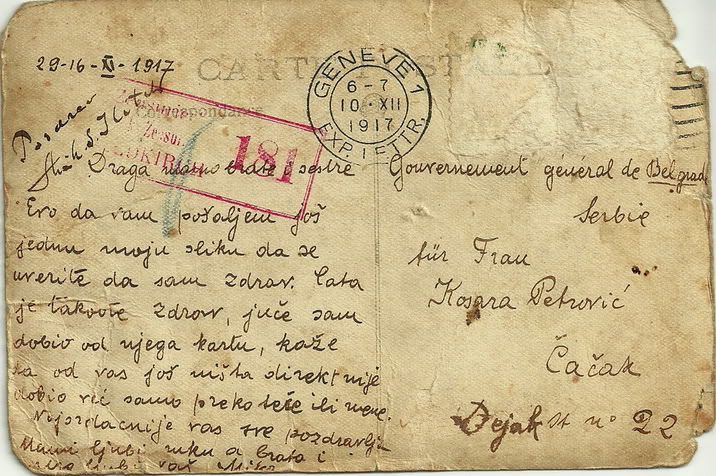 29-16-XI-1917
CARTE POSTALE
Correspondance
GENEVE 1
6-7
10·XII
1917
EXP. LETTR.
181
Draga mamo brate i sestre
Evo da vam pošaljem još
jednu moju sliku da se
uverite da sam zdrav. Tata
je takođe zdrav, juče sam
dobio od njega kartu, kaže
da od vas još ništa direktnije
dobio već samo preko tete ili mene.
Najsrdačnije vas sve pozdravlja
Mami ljubi ruku a brata i
Gouvernement général de Belgrade
Serbie
für Frau
Kosara Petrović
Čačak
n° 22